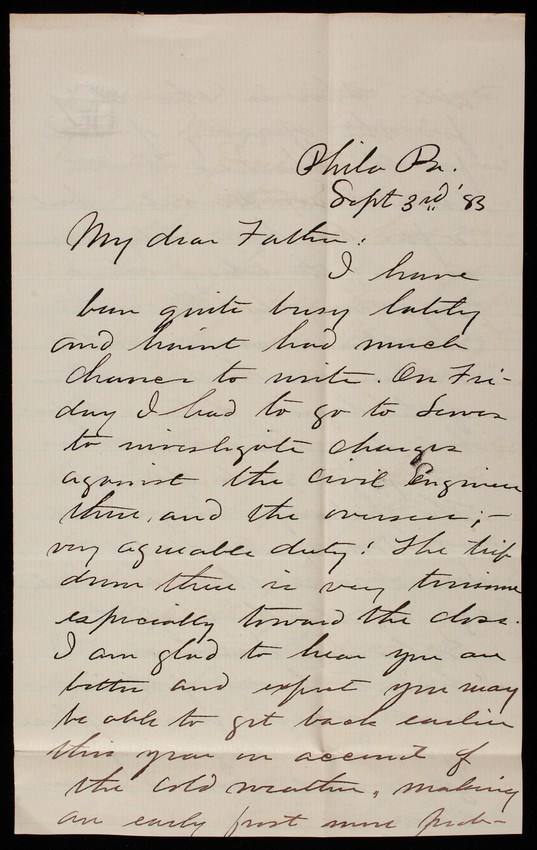 Phila Pa.
Sept 3rd '83
My dear Father:
I have
been quite busy lately
and haint had much
chance to write. On Fri-
day I had to go to Lewes
to investigate charges
against the Civil Engineer
there, and the overseer;-
very agreeable duty! The trip
down there is very tiresome
especially toward the close.
I am glad to hear you are
better and expect you may
be able to get back earlier
this year on account of
the cold weather, making
an early frost more prob-